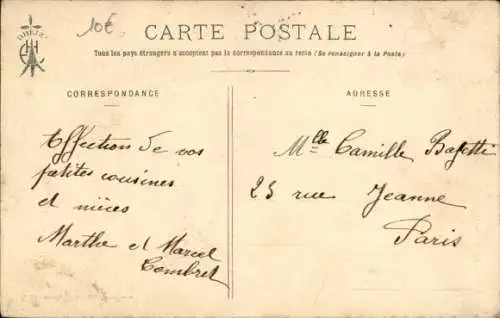 10€
CARTE POSTALE
Tous les pays étrangers n'acceptent pas la correspondance au recto (Se renseigner à la Poste)
CORRESPONDANCE
ADRESSE
Affection de vos
petites cousines
et nièces
Marthe et Marcel
Combret
Mlle Camille
25 rue Jeanne
Paris